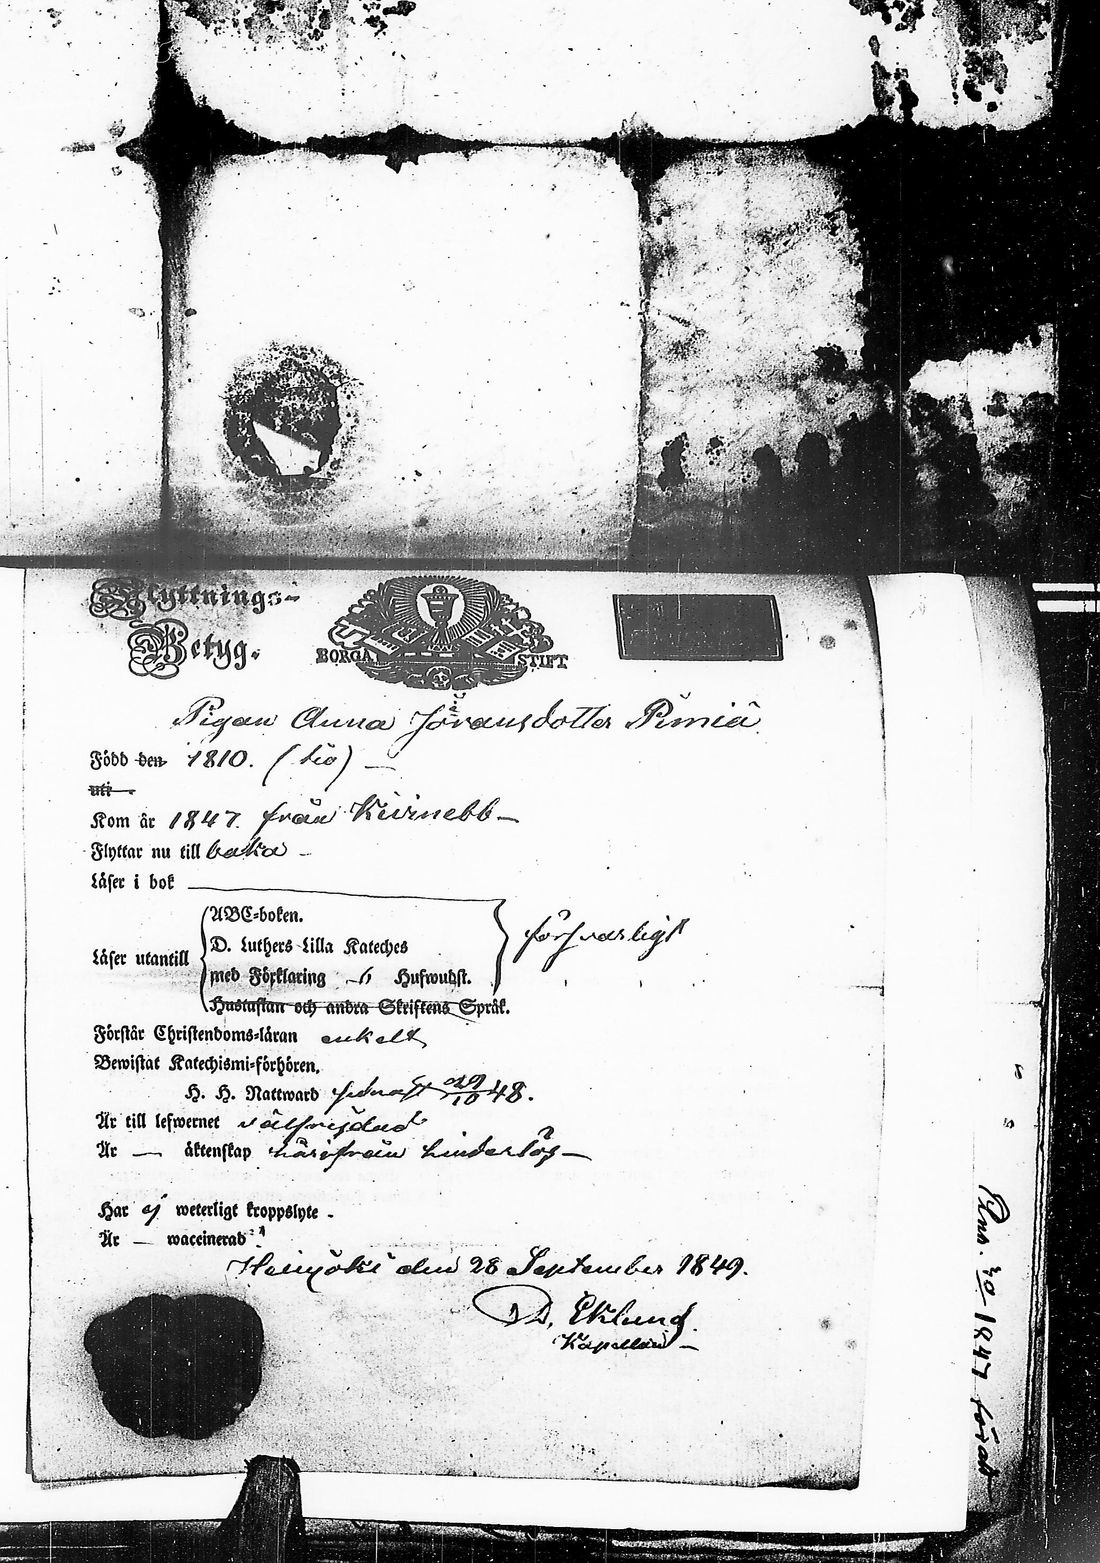 Flyttnings-
Betyg.
BORGÅ STIFT
Pigan Anna Jöransdotter Pimiä
Född den 1810. (tio) —
uti — .
Kom år 1847. från Kivinebb —
Flyttar nu till baka —
Läser i bok
ABC-boken.
D. Luthers Lilla Kateches
Läser utantill
med Förklaring — 6 Hufwudst.
försvarligt
Hustaflan och andra Skriftens Språk.
Förstår Christendoms-läran enkelt
Bewistat Katechismi-förhören.
H. H. Nattward sednast 29/10 48.
Är till lefwernet välfrejdad
Är — äktenskap härifrån hinderlös —
Har ej weterligt kroppslyte -
Är — waccinerad
Heinjoki den 28 September 1849.
D. Eklund.
Kapellan —
1847